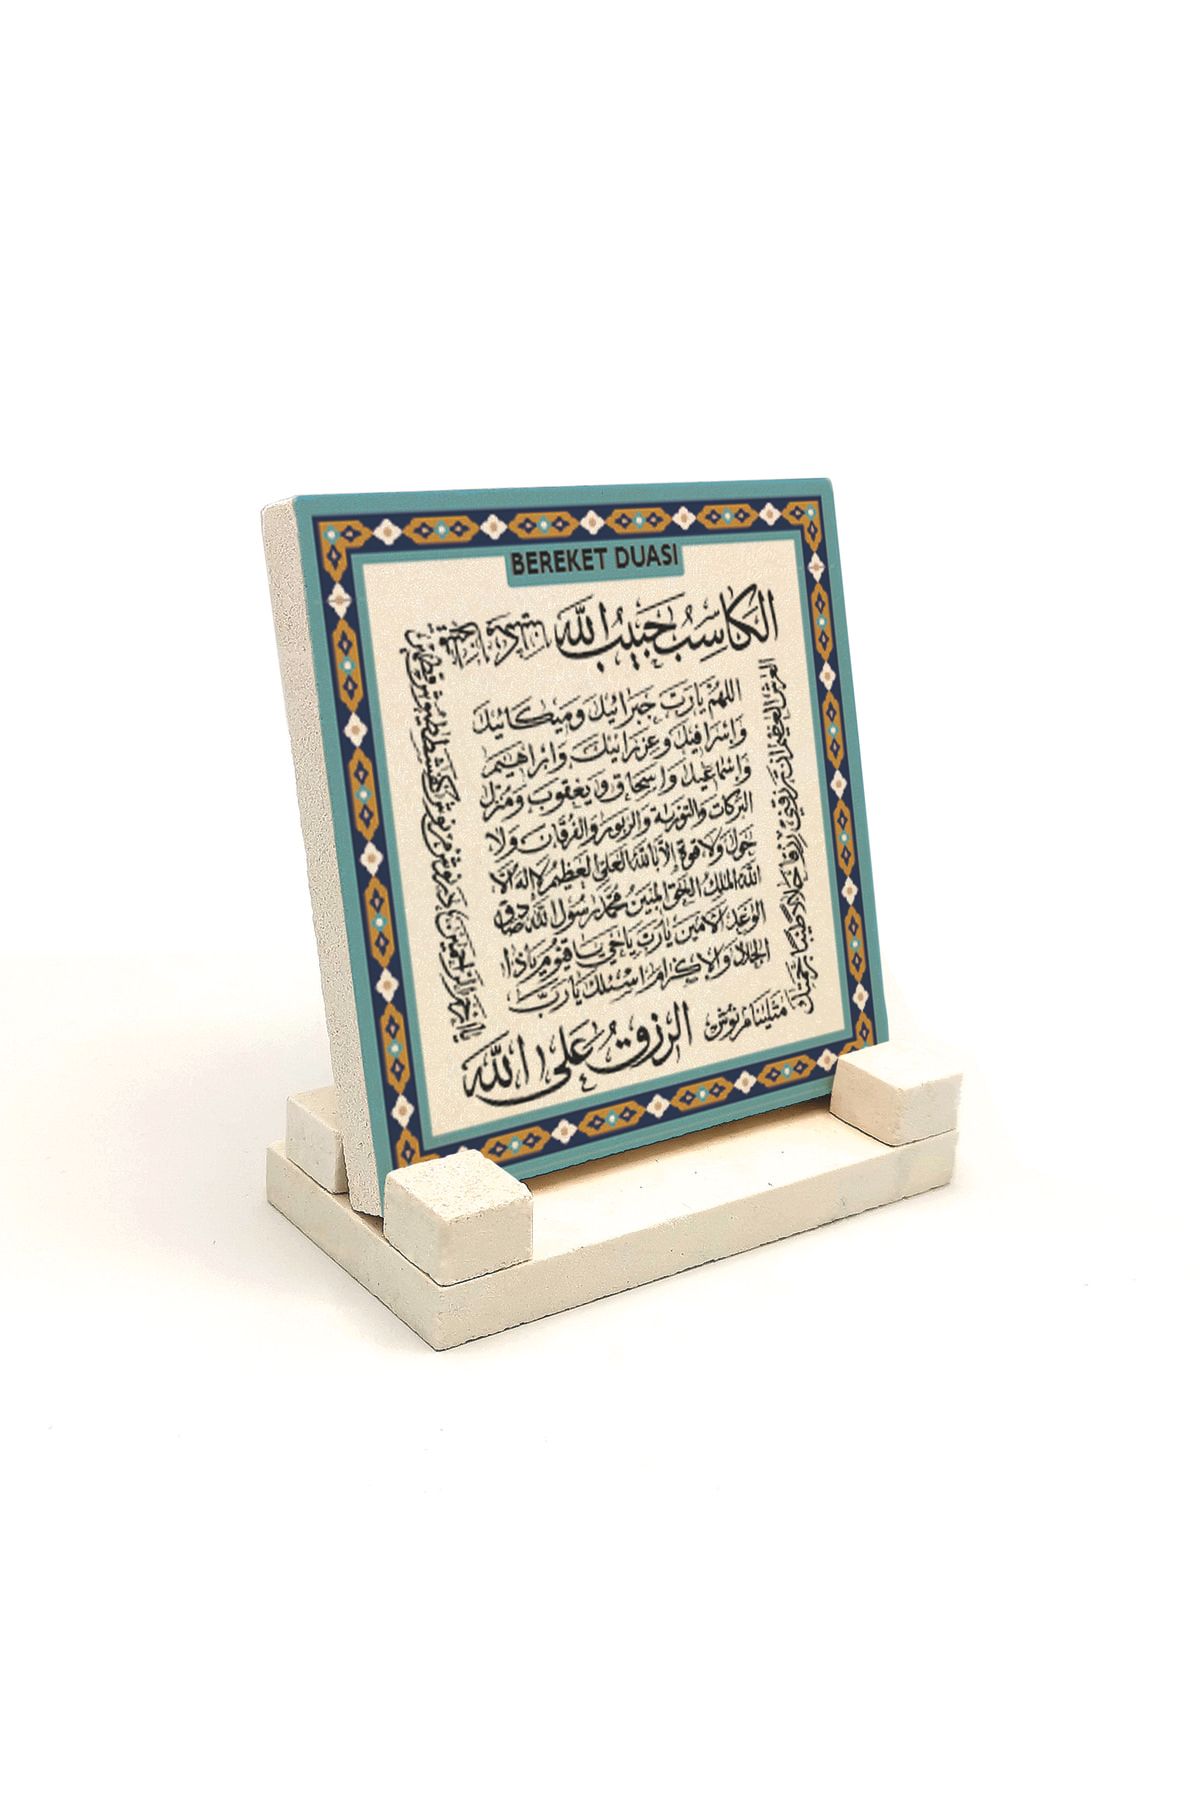 BEREKET DUASI
الكاسب حبيب الله
اللهم يارب جبرائيل وميكائيل
واسرافيل وعزرائيل وابراهيم
واسماعيل واسحاق ويعقوب ومنزل
البركات والتورية والزبور والفرقان ولا
حول ولا قوة الا بالله العلى العظيم لا اله الا
الله الملك الحق المبين محمد رسول الله صادق
الوعد الامين يارب يارب ياحى ياقيوم ياذا
الجلال والاكرام اسئلك يارب
العرش العظيم ان ترزقنى رزقا حلالا طيبا برحمتك
يا ارحم الراحمين
يمليخا
الرزق على الله